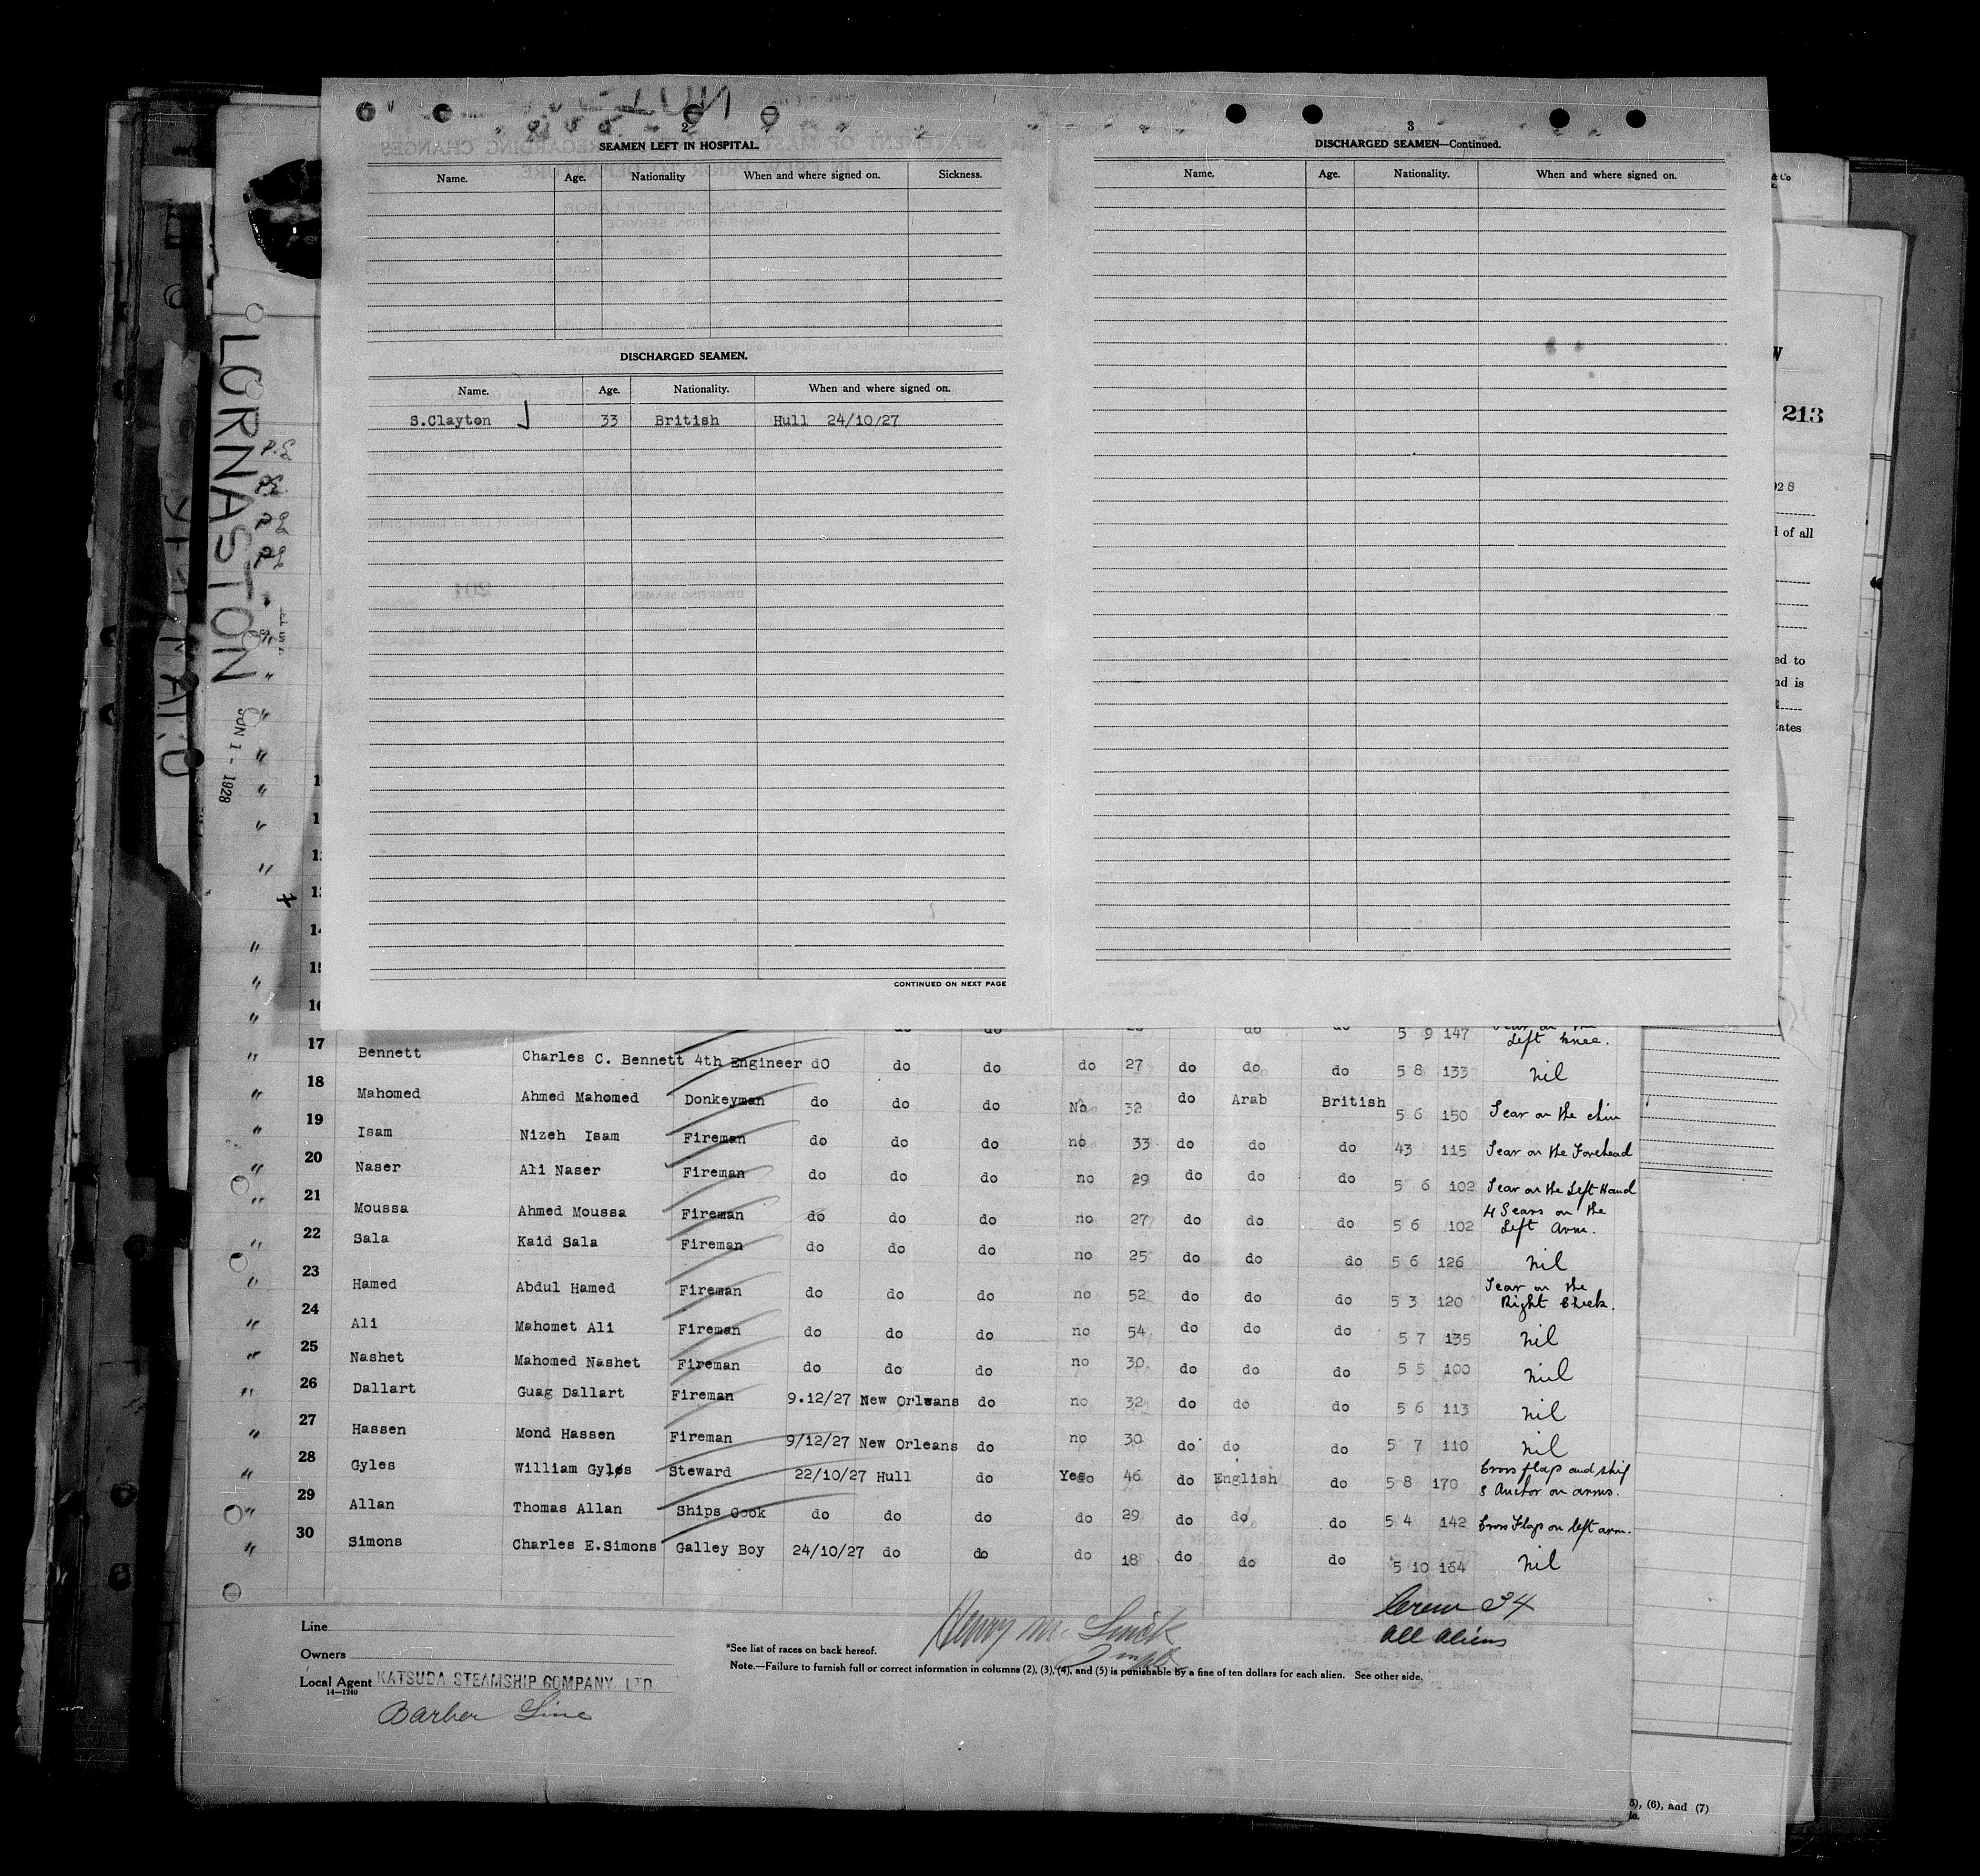 2
SEAMEN LEFT IN HOSPITAL.
Name. Age. Nationality When and where signed on. Sickness.
DISCHARGED SEAMEN.
Name. Age. Nationality. When and where signed on.
S.Clayton 33 British Hull 24/10/27
CONTINUED ON NEXT PAGE
3
DISCHARGED SEAMEN—Continued.
Name. Age. Nationality. When and where signed on.
LORNASTON
JUN 1 - 1928
& Co
213
of all
ed to
nd is
tates
14
15
5 9 147 Left knee.
17 Bennett Charles C. Bennett 4th Engineer dO do do do 27 do do do 5 8 133 nil
18 Mahomed Ahmed Mahomed Donkeyman do do do No 32 do Arab British 5 6 150 Scar on the chin
19 Isam Nizeh Isam Fireman do do do no 33 do do do 43 115 Scar on the Forehead
20 Naser Ali Naser Fireman do do do no 29 do do do 5 6 102 Scar on the Left Hand
21 Moussa Ahmed Moussa Fireman do do do no 27 do do do 5 6 102 4 Scars on the
Left Arm.
22 Sala Kaid Sala Fireman do do do no 25 do do do 5 6 126 nil
23 Hamed Abdul Hamed Fireman do do do no 52 do do do 5 3 120 Scar on the
Right Cheek.
24 Ali Mahomet Ali Fireman do do do no 54 do do do 5 7 135 nil
25 Nashet Mahomed Nashet Fireman do do do no 30 do do do 5 5 100 nil
26 Dallart Guag Dallart Fireman 9.12/27 New Orleans do no 32 do do do 5 6 113 nil
27 Hassen Mond Hassen Fireman 9/12/27 New Orleans do no 30 do do do 5 7 110 nil
28 Gyles William Gyles Steward 22/10/27 Hull do Yes 46 do English do 5 8 170 Cross flags and ship
& Anchor on arms.
29 Allan Thomas Allan Ships Cook do do do do 29 do do do 5 4 142 Cross Flags on left arm.
30 Simons Charles E.Simons Galley Boy 24/10/27 do do do 18 do do do 5 10 164 nil
Crew 34
All Aliens
Line
Owners
Local Agent KATSUDA STEAMSHIP COMPANY, LTD
14—1240
Barber Line
Henry M.
*See list of races on back hereof.
Note.—Failure to furnish full or correct information in columns (2), (3), (4), and (5) is punishable by a fine of ten dollars for each alien. See other side.
5), (6), and (7)